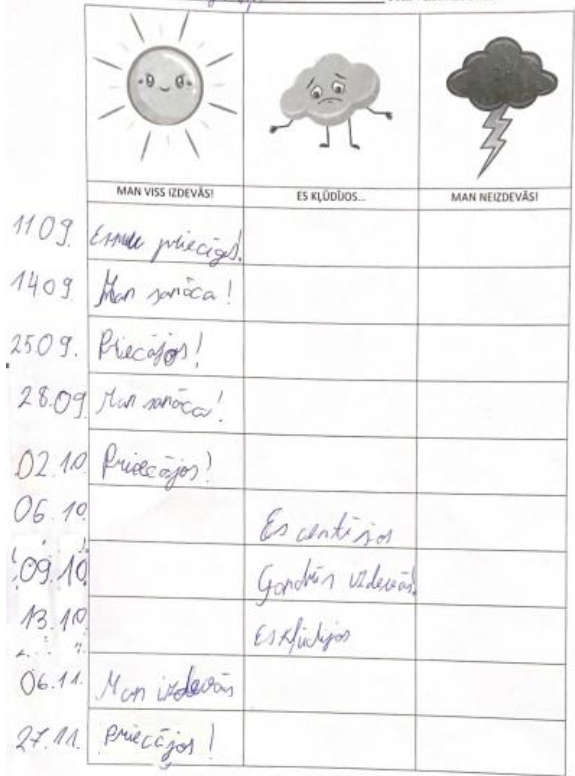 MAN VISS IZDEVĀS! ES KĻŪDĪJOS... MAN NEIZDEVĀS!
11 09. priecīgs!
14 09 Man sanāca!
25 09. Priecājos!
28.09 Man sanāca!
02.10. Priecājos!
06.10. Es centījos
09.10 Gandrīz izdevās!
13.10 Es kļūdijos
06.11. Man izdevās
27.11. Priecājos!